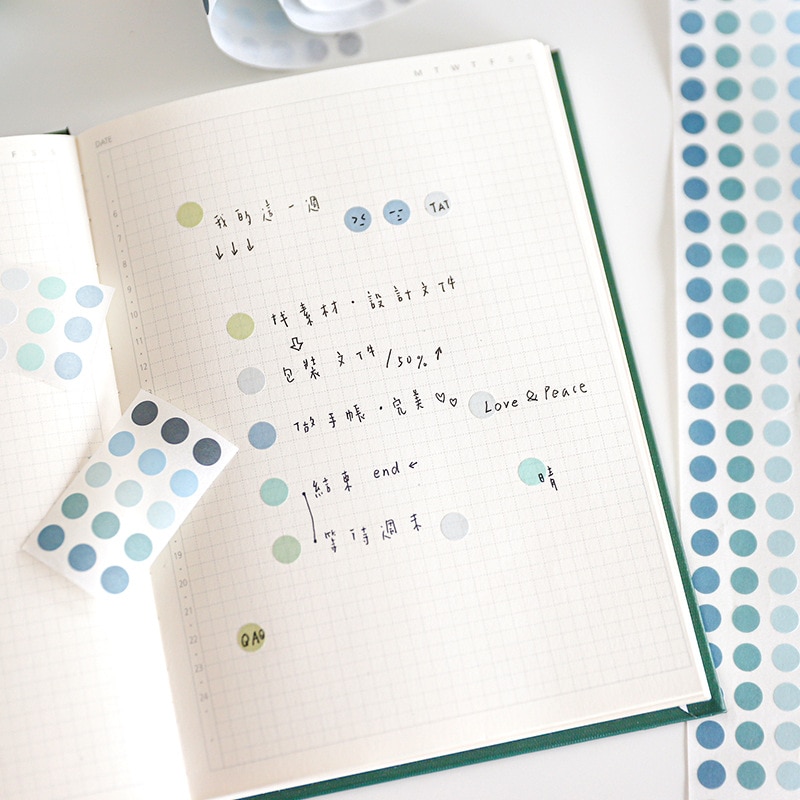 M T W T F S S
DATE
F S S
我的這一週
TAT
↓↓↓
找素材・設計文件
⇩
包裝文件/50%↑
做手帳・完美♡♡ Love & Peace
結束 end ←
晴
等待週末
QAQ
6
7
8
9
10
11
12
19
20
21
22
23
24